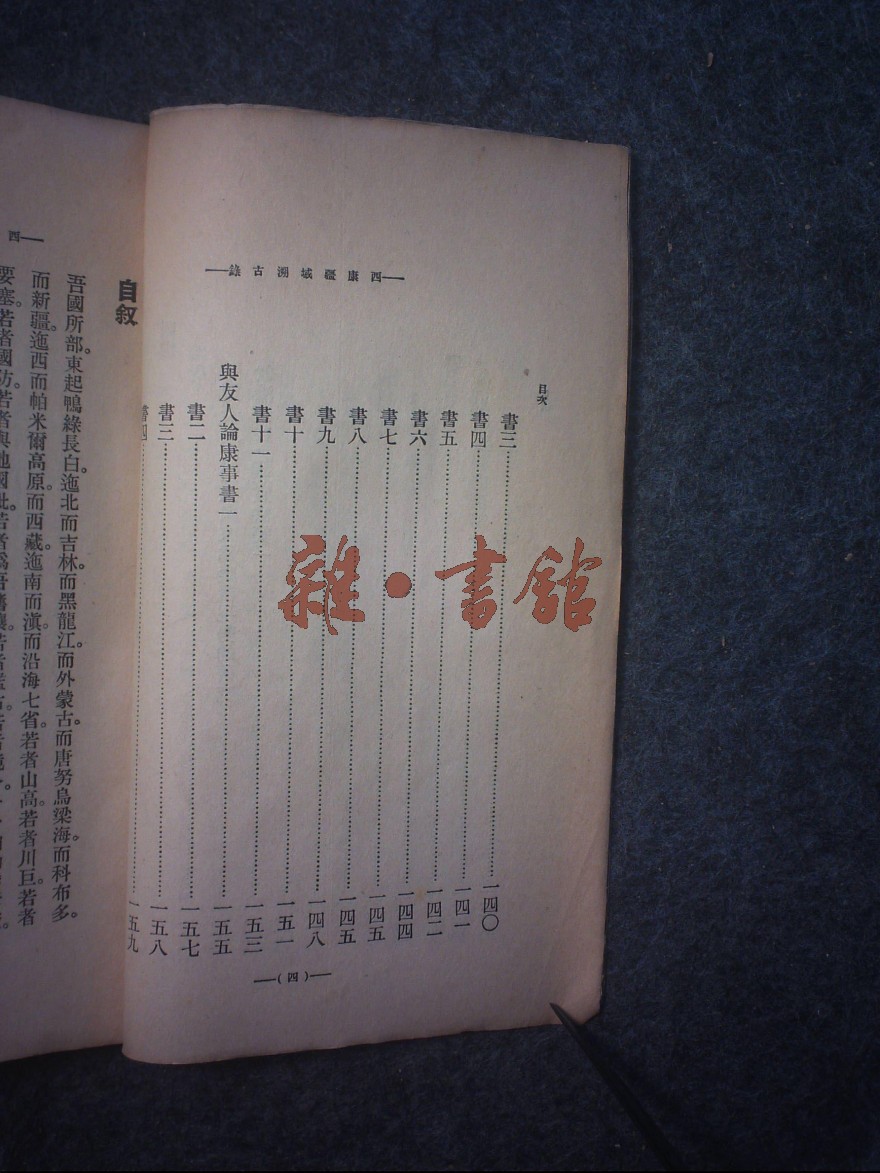 西康疆域溯古錄
目次
書三⋯⋯一四〇
書四⋯⋯一四一
書五⋯⋯一四二
書六⋯⋯一四四
書七⋯⋯一四五
書八⋯⋯一四五
書九⋯⋯一四八
書十⋯⋯一五一
書十一⋯⋯一五三
與友人論康事書一⋯⋯一五五
書二⋯⋯一五七
書三⋯⋯一五八
書四⋯⋯一五九
(四)
自叙
吾國所部。東起鴨綠長白。迤北而吉林。而黑龍江。而外蒙古。而唐努烏梁海。而科布多。
而新疆。迤西而帕米爾高原。而西藏。迤南而滇。而沿海七省。若者山高。若者川巨。若者
要塞。若者國防。若者與他國毗。若者爲吾藩
雜·書館